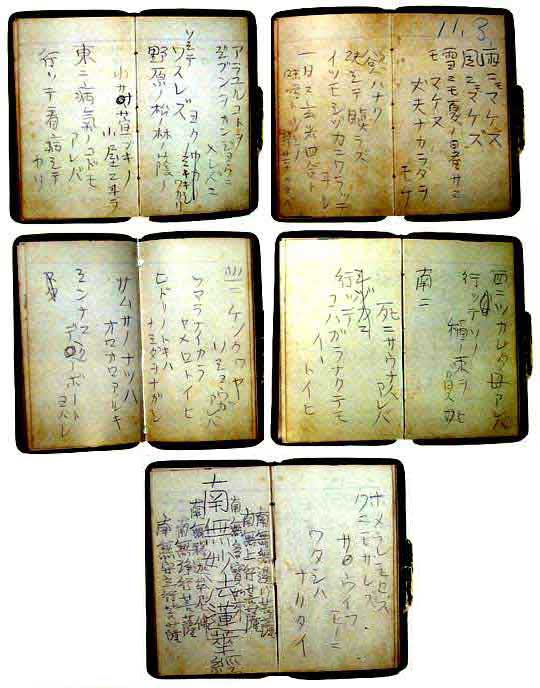 11.3.
雨ニモマケズ
風ニモマケズ
雪ニモ夏ノ暑サニモ
マケヌ
丈夫ナカラダヲ
モチ
慾ハナク
決シテ瞋ラズ
イツモシヅカニワラッテ
ヰル
一日ニ玄米四合ト
味噌ト少シノ
野菜ヲタベ
アラユルコトヲ
ジブンヲカンジョウニ
入レズニ
ヨクミキキシワカリ
ソシテ
ワスレズ
野原ノ松ノ林ノ蔭ノ
小サナ萱ブキノ
小屋ニヰテ
東ニ病氣ノコドモ
アレバ
行ッテ看病シテ
ヤリ
西ニツカレタ母アレバ
行ッテソノ
稲ノ束ヲ負ヒ
南ニ
死ニサウナ人
アレバ
行ッテ
コハガラナクテモ
イヽトイヒ
北ニケンクヮヤ
ソショウガ
アレバ
ツマラナイカラ
ヤメロトイヒ
ヒドリノトキハ
ナミダヲナガシ
サムサノナツハ
オロオロアルキ
ミンナニ
デクノボート
ヨバレ
ホメラレモセズ
クニモサレズ
サウイフモノニ
ワタシハ
ナリタイ
南無無邊行菩薩
南無上行菩薩
南無多寳如来
南無妙法蓮華經
南無釈迦牟尼佛
南無浄行菩薩
南無安立行菩薩